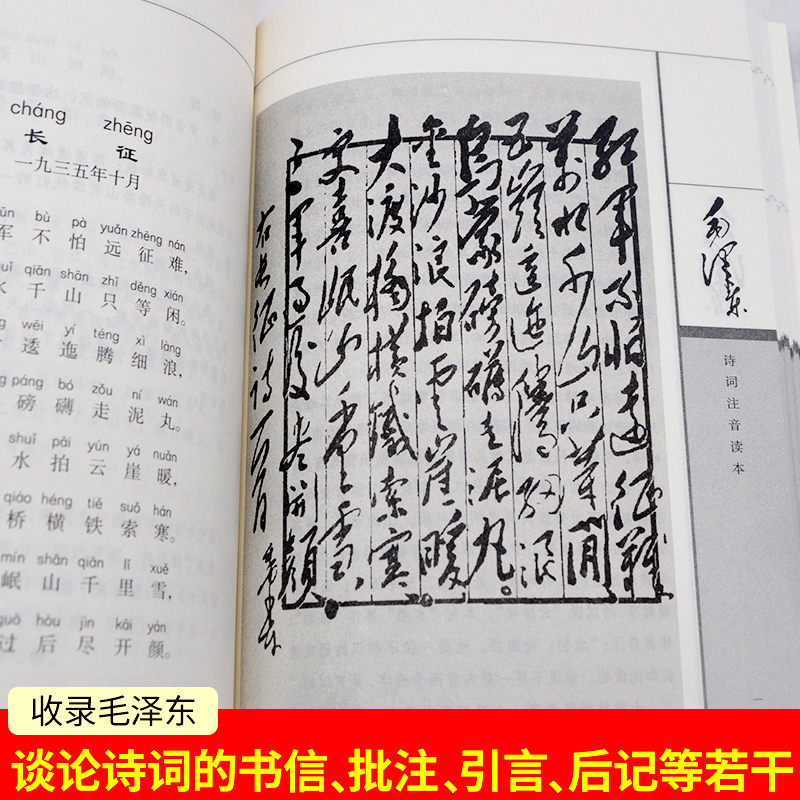 cháng zhēng
长征
一九三五年十月
bù pà yuǎn zhēng nán
军不怕远征难，
qiān shān zhǐ děng xián
水千山只等闲。
wēi yí téng xì làng
逶迤腾细浪，
páng bó zǒu ní wán
磅礴走泥丸。
shuǐ pāi yún yá nuǎn
水拍云崖暖，
qiáo héng tiě suǒ hán
桥横铁索寒。
mín shān qiān lǐ xuě
岷山千里雪，
guò hòu jìn kāi yán
过后尽开颜。
紅軍不怕遠征難
萬水千山只等閒
五嶺逶迤騰細浪
烏蒙磅礴走泥丸。
金沙浪拍雲崖暖
大渡橋橫鐵索寒
更喜岷山千里雪
三軍過後盡開顏
右長征詩一首
毛泽东
毛泽东
诗词注音读本
收录毛泽东
谈论诗词的书信、批注、引言、后记等若干